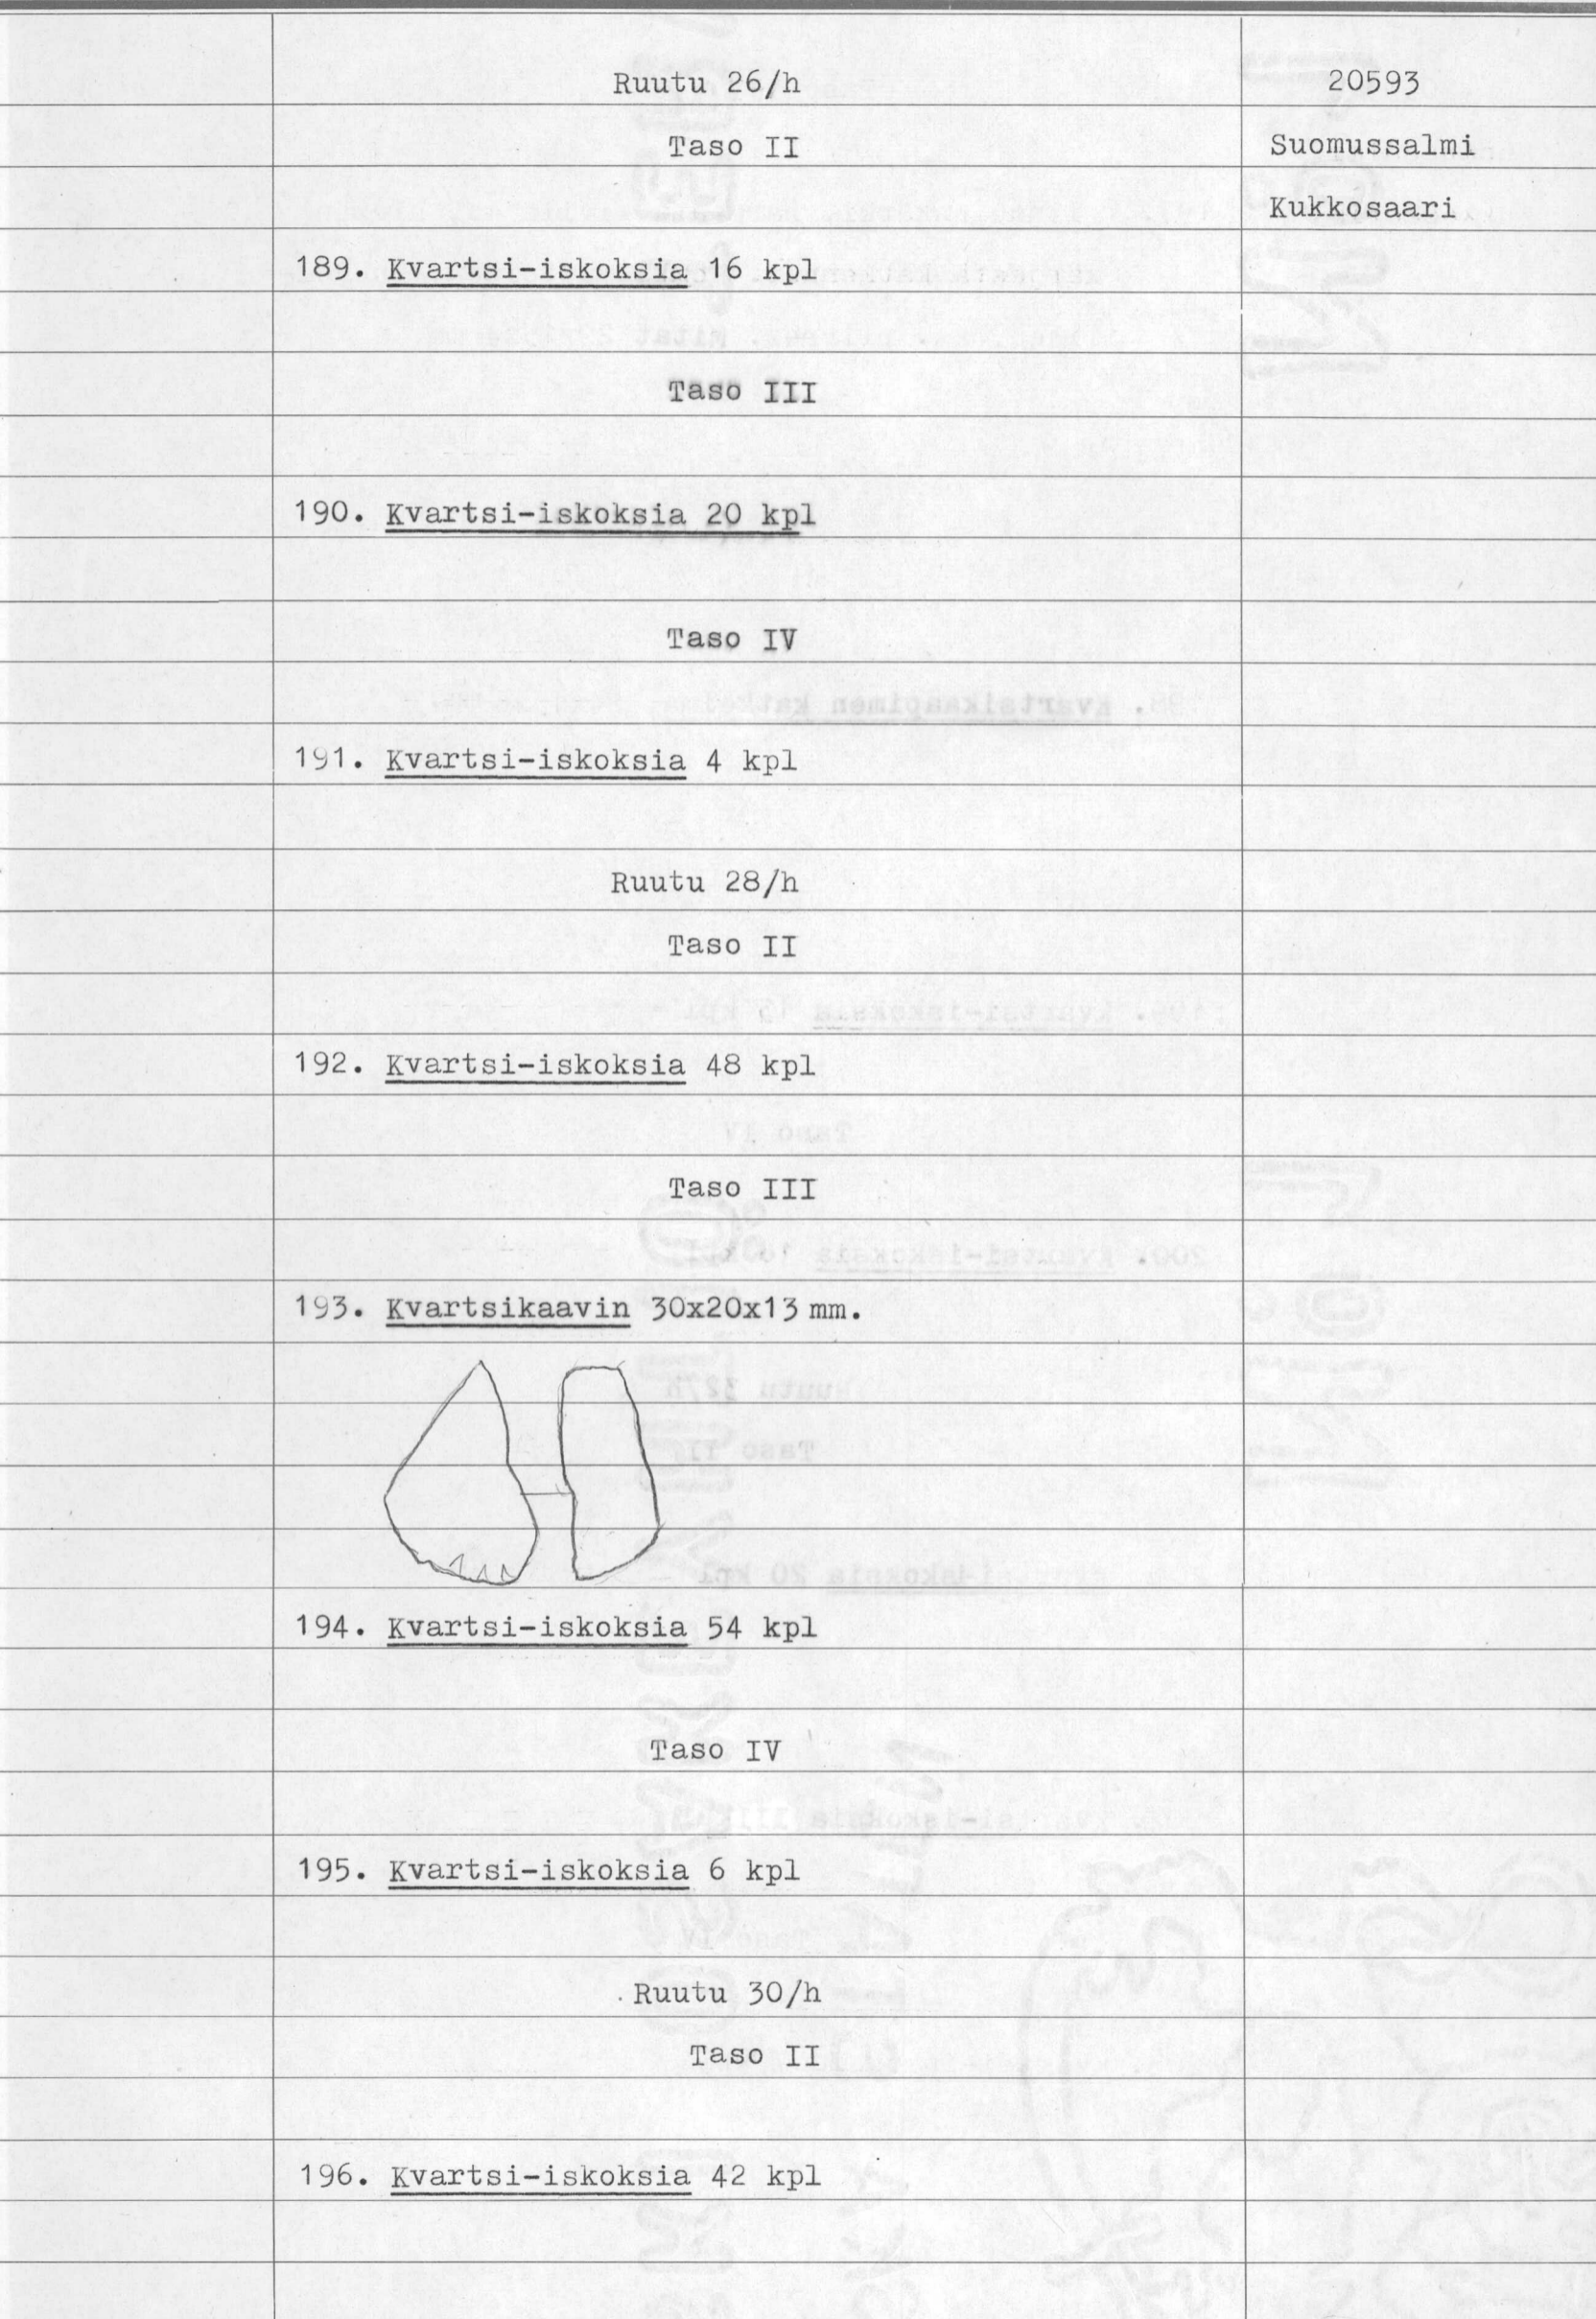 Ruutu 26/h
20593
Taso II
Suomussalmi
Kukkosaari
189. Kvartsi-iskoksia 16 kpl
Taso III
190. Kvartsi-iskoksia 20 kpl
Taso IV
191. Kvartsi-iskoksia 4 kpl
Ruutu 28/h
Taso II
192. Kvartsi-iskoksia 48 kpl
Taso III
193. Kvartsikaavin 30x20x13 mm.
194. Kvartsi-iskoksia 54 kpl
Taso IV
195. Kvartsi-iskoksia 6 kpl
Ruutu 30/h
Taso II
196. Kvartsi-iskoksia 42 kpl